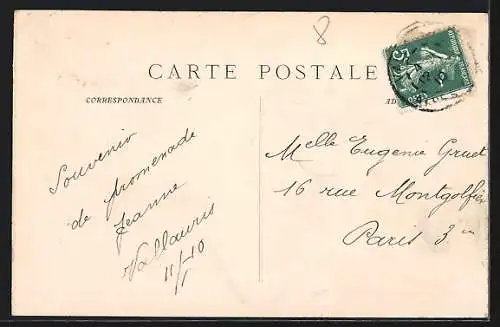 8
CARTE POSTALE
CORRESPONDANCE
AD
5
Souvenir
de promenade
Jeanne
Vallauris
11/1-10
Melle Eugenie Gruet
16 rue Montgolfier
Paris 3e